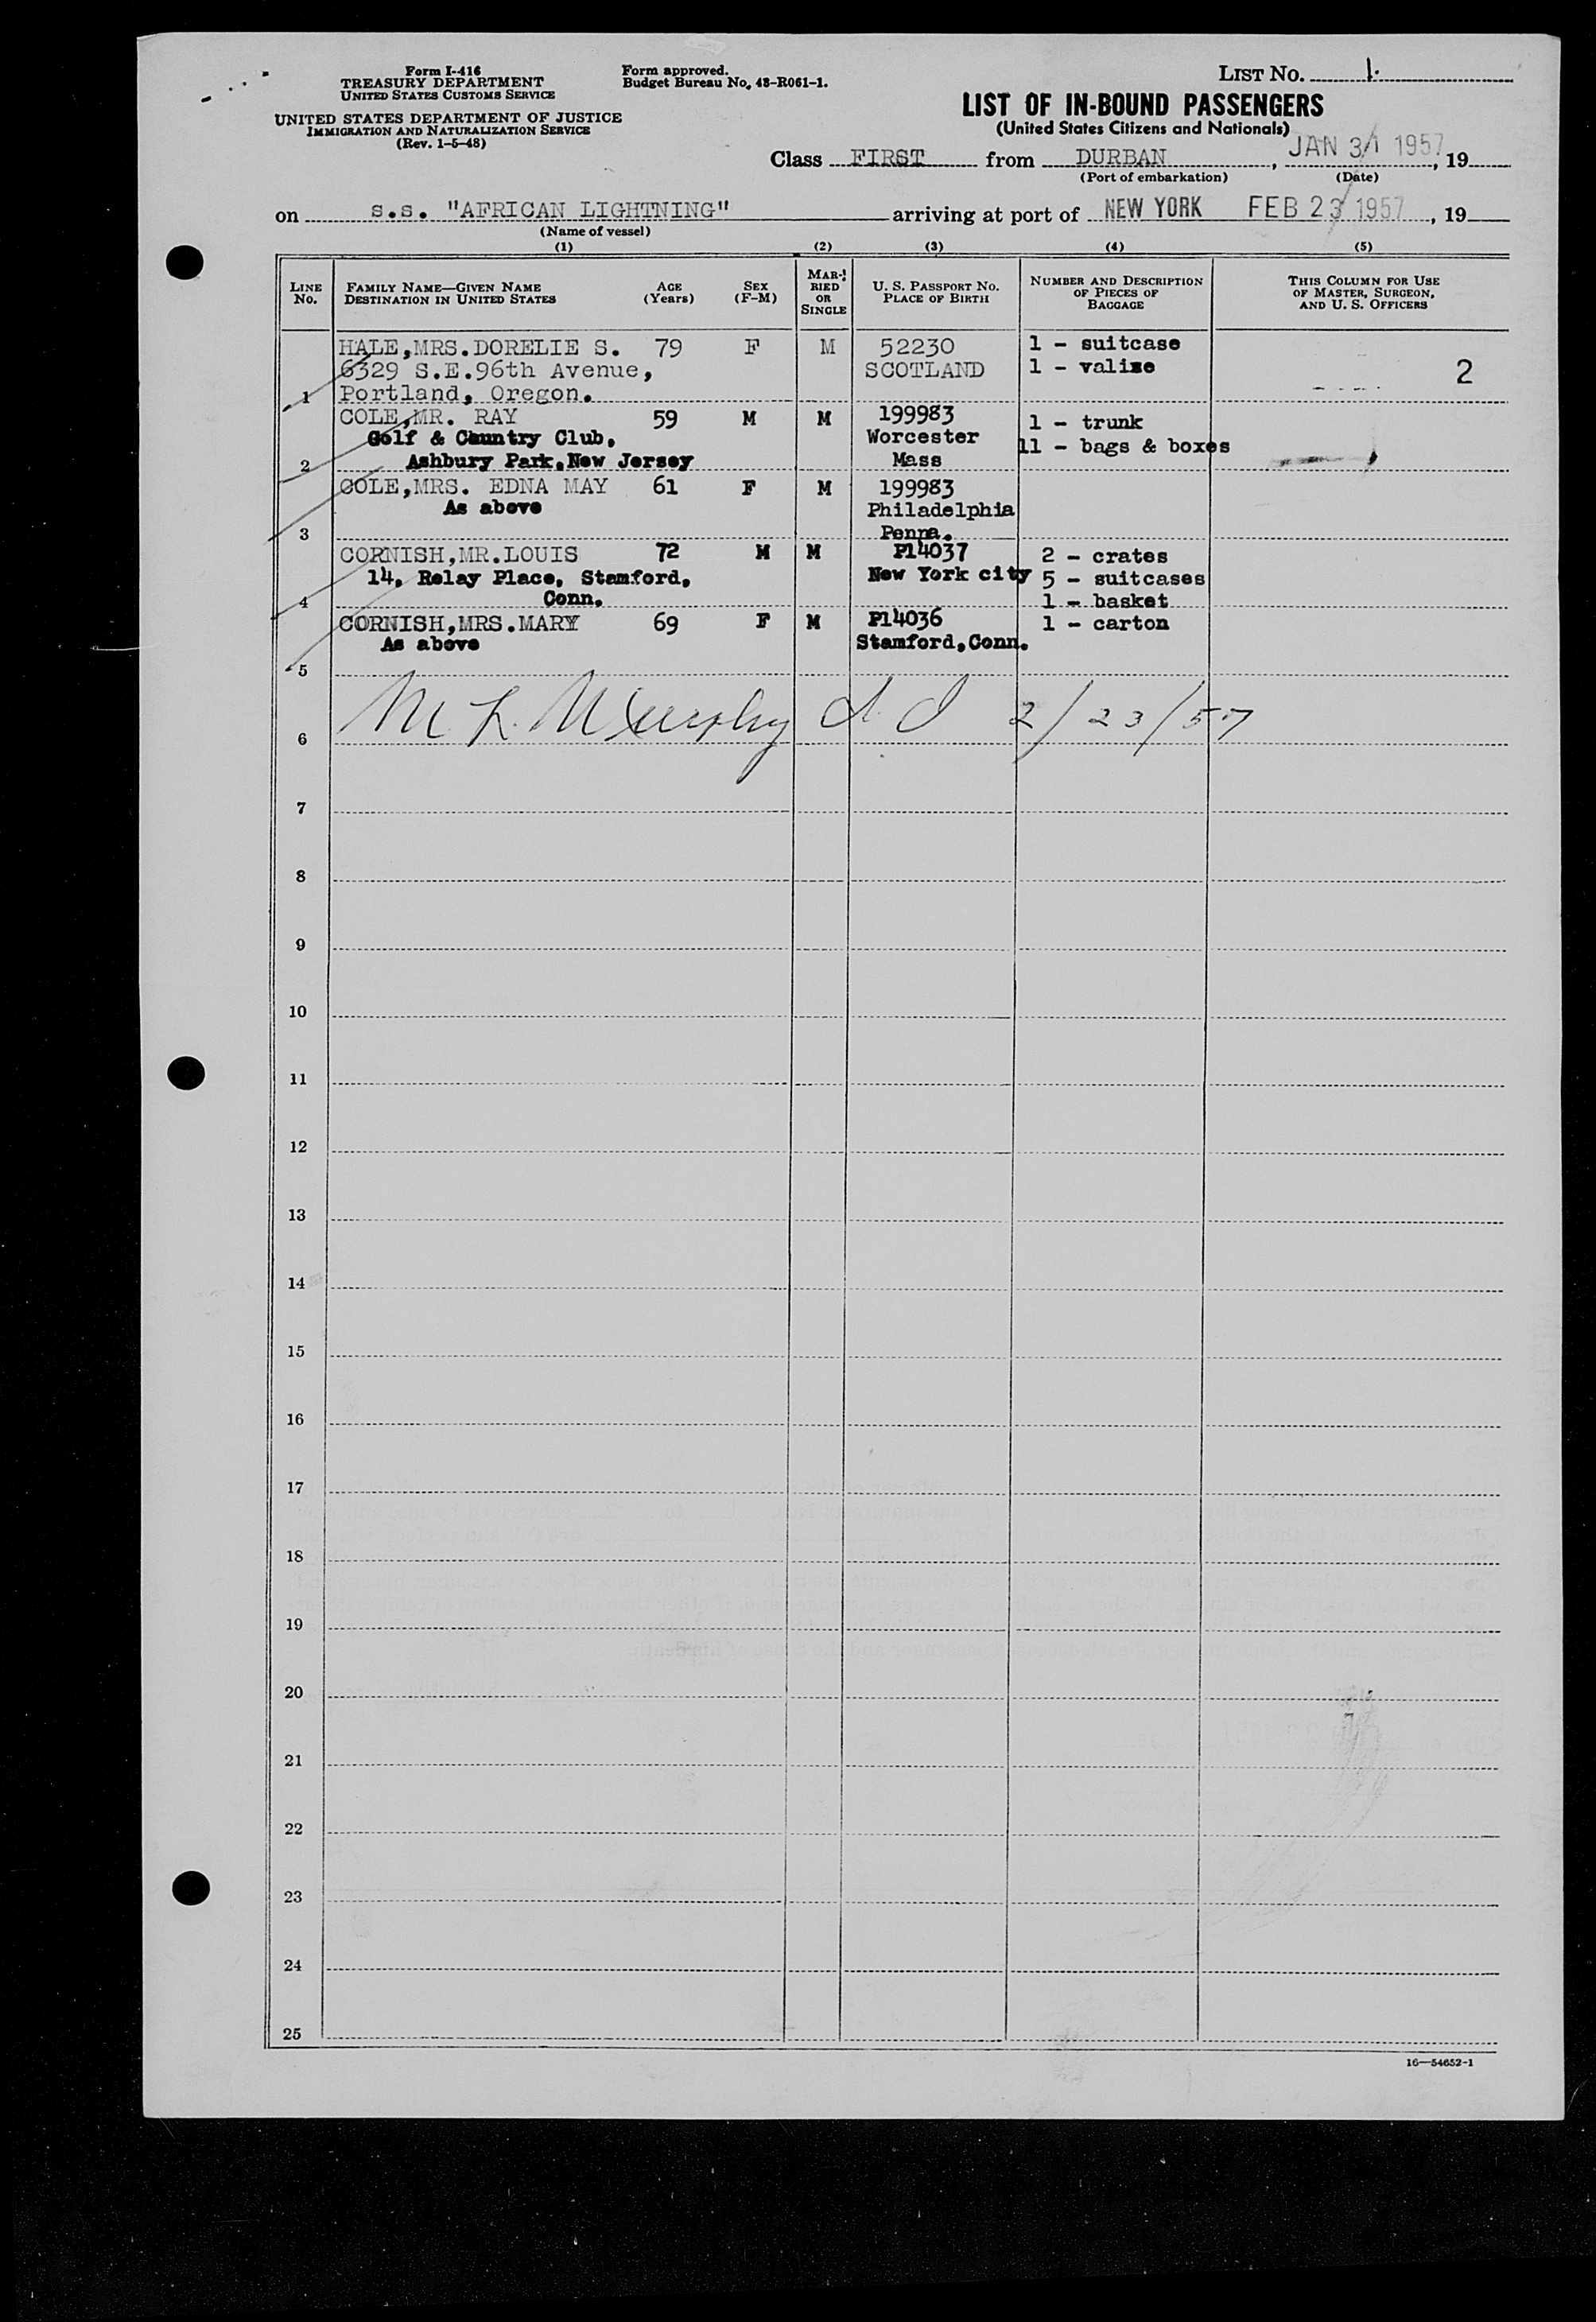 Form I-416
TREASURY DEPARTMENT
UNITED STATES CUSTOMS SERVICE
UNITED STATES DEPARTMENT OF JUSTICE
IMMIGRATION AND NATURALIZATION SERVICE
(Rev. 1-5-48)
Form approved.
Budget Bureau No. 43-R061-1.
LIST No. 1.
LIST OF IN-BOUND PASSENGERS
(United States Citizens and Nationals)
Class FIRST from DURBAN, JAN 31 1957, 19
(Port of embarkation) (Date)
on s.s. "AFRICAN LIGHTNING" arriving at port of NEW YORK FEB 23 1957, 19
(Name of vessel)
(1) (2) (3) (4) (5)
LINE No. FAMILY NAME—GIVEN NAME DESTINATION IN UNITED STATES AGE (Years) SEX (F-M) MARRIED OR SINGLE U. S. PASSPORT No. PLACE OF BIRTH NUMBER AND DESCRIPTION OF PIECES OF BAGGAGE THIS COLUMN FOR USE OF MASTER, SURGEON, AND U. S. OFFICERS
HALE,MRS.DORELIE S. 79 F M 52230 1 - suitcase
6329 S.E.96th Avenue, SCOTLAND 1 - valise 2
1 Portland, Oregon.
COLE,MR. RAY 59 M M 199983 1 - trunk
Golf & Country Club, Worcester 11 - bags & boxes
2 Ashbury Park,New Jersey Mass
COLE,MRS. EDNA MAY 61 F M 199983
As above Philadelphia
3 Penna.
CORNISH,MR.LOUIS 72 M M P14037 2 - crates
14, Relay Place, Stamford, New York city 5 - suitcases
4 Conn. 1 - basket
CORNISH,MRS.MARY 69 F M P14036 1 - carton
As above Stamford,Conn.
5
6 M L Murphy 2/23/57
7
8
9
10
11
12
13
14
15
16
17
18
19
20
21
22
23
24
25
16—54652-1